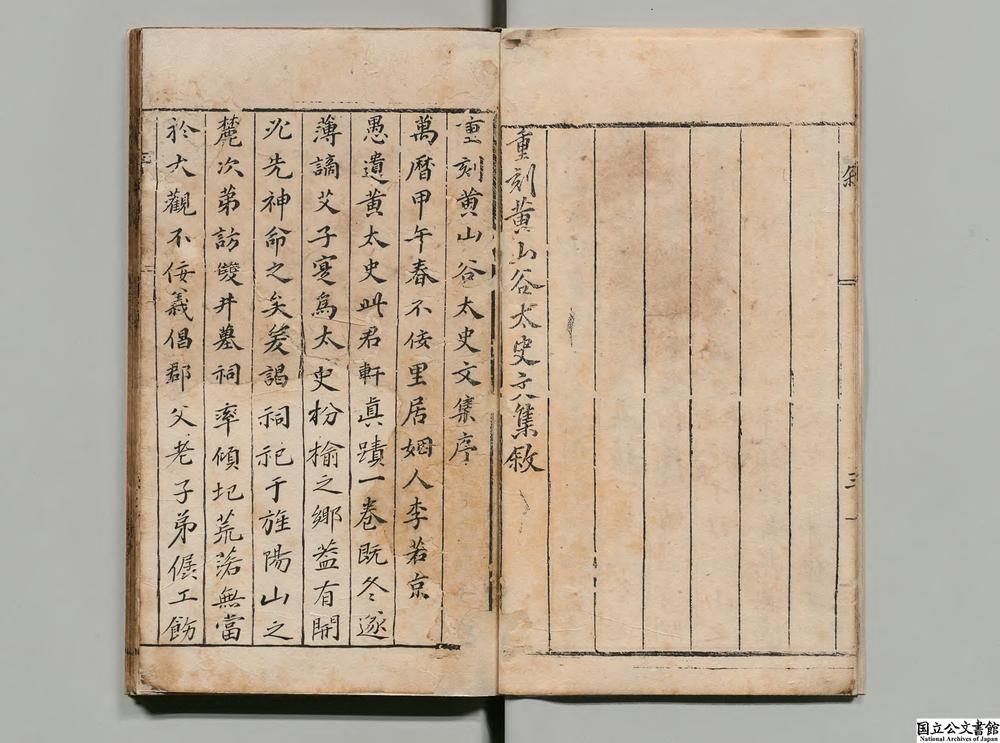 重刻黄山谷太史文集敘
重刻黄山谷太史文集序
萬曆甲午春不佞里居姻人李若京
愚遺黄太史此君軒眞蹟一卷既冬逐
薄謫艾子寔爲太史枌榆之鄉葢有開
必先神命之矣爰謁祠祀于旌陽山之
麓次第訪雙井墓祠率傾圮荒落無當
於大觀不佞義倡郡父老子弟僝工飭
国立公文書館
National Archives of Japan